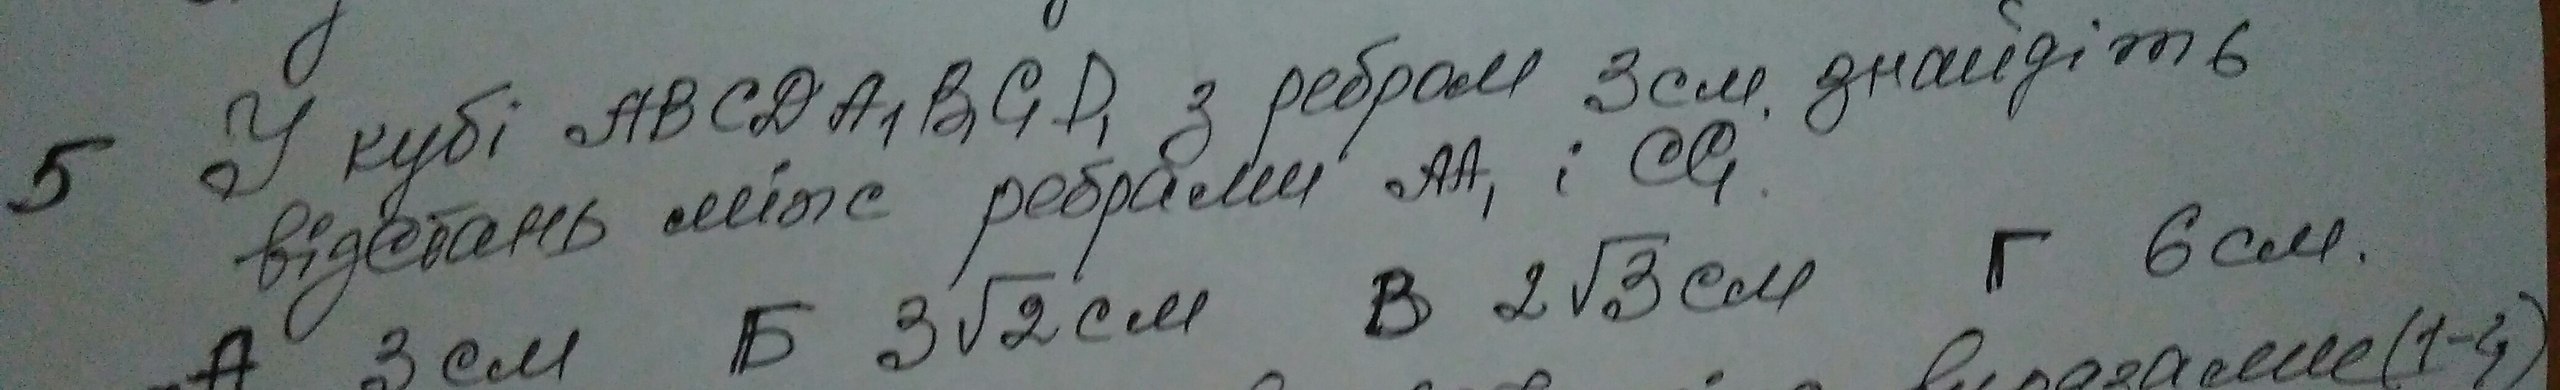 5 У кубі ABCDA₁B₁C₁D₁ з ребром 3 см. знайдіть
відстань між ребрами AA₁ і CC₁.
А 3 см Б 3√2 см В 2√3 см Г 6 см.
(1-4)